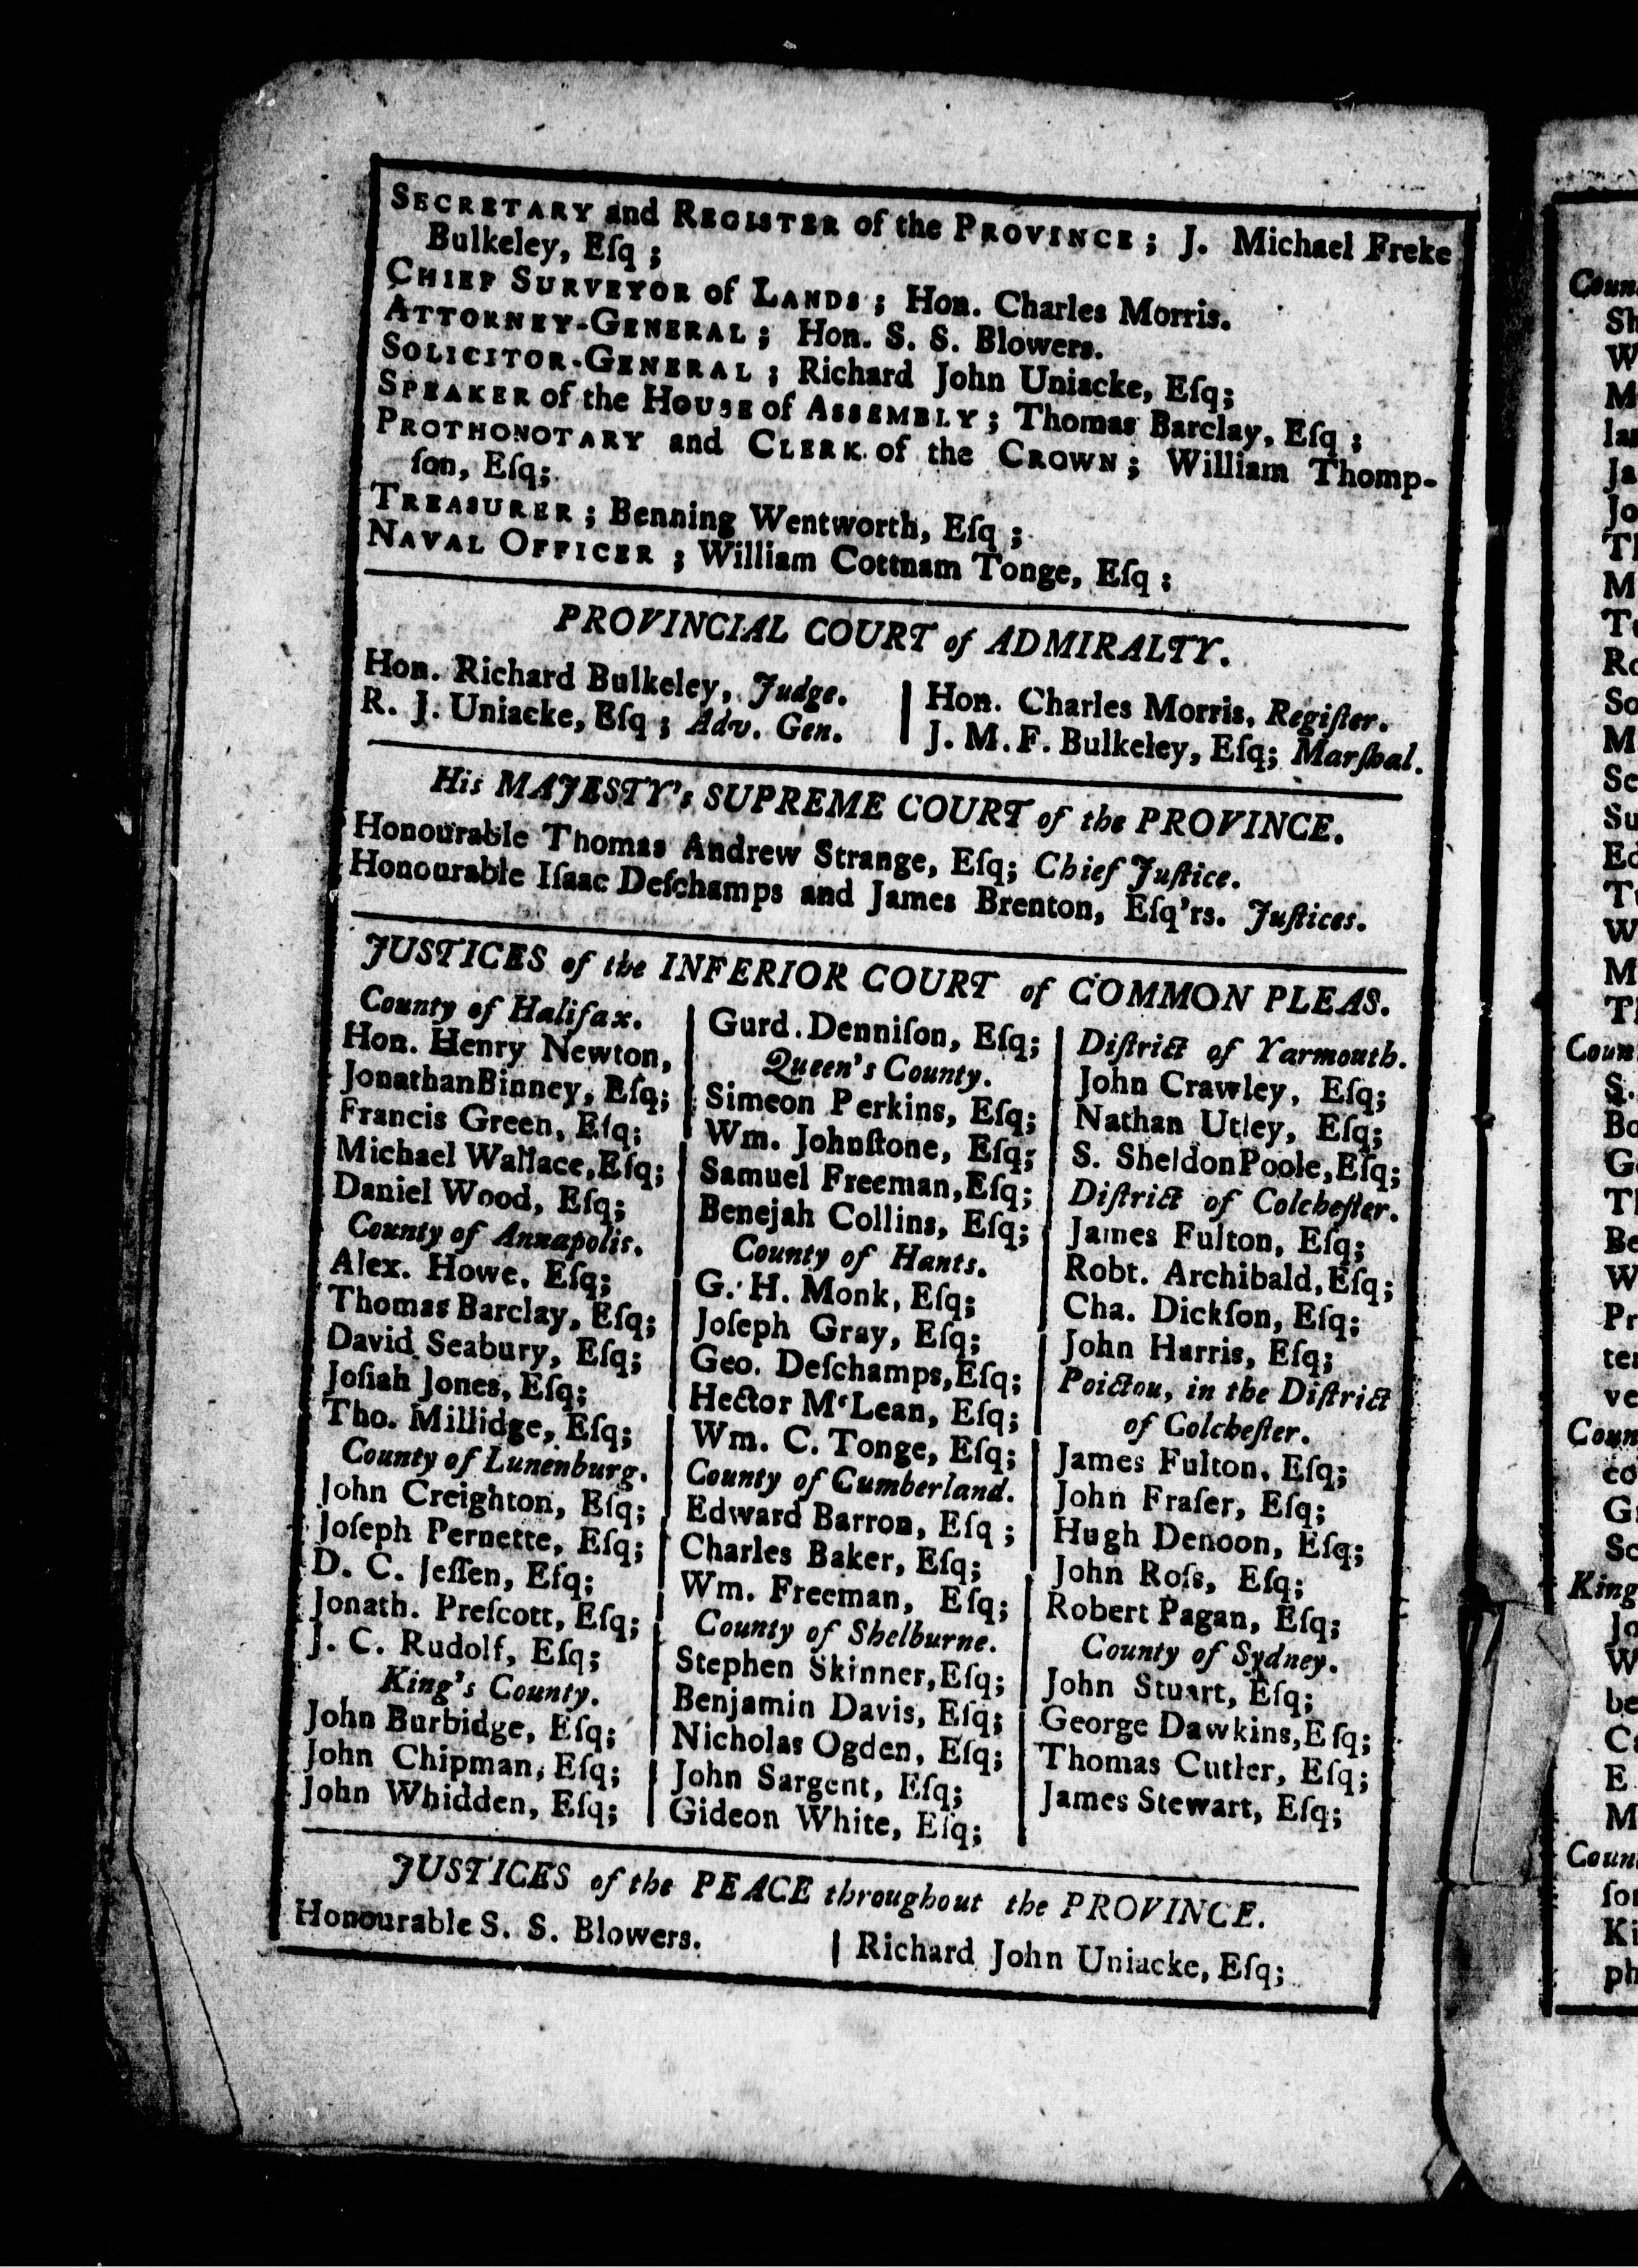 SECRETARY and REGISTER of the PROVINCE; J. Michael Freke
Bulkeley, Eſq;
CHIEF SURVEYOR of LANDS; Hon. Charles Morris.
ATTORNEY-GENERAL; Hon. S. S. Blowers.
SOLICITOR-GENERAL; Richard John Uniacke, Eſq;
SPEAKER of the HOUSE of ASSEMBLY; Thomas Barclay, Eſq;
PROTHONOTARY and CLERK of the CROWN; William Thomp-
ſon, Eſq;
TREASURER; Benning Wentworth, Eſq;
NAVAL OFFICER; William Cottnam Tonge, Eſq;
PROVINCIAL COURT of ADMIRALTY.
Hon. Richard Bulkeley, Judge.
R. J. Uniacke, Eſq; Adv. Gen.
Hon. Charles Morris, Regiſter.
J. M. F. Bulkeley, Eſq; Marſhal.
His MAJESTY's SUPREME COURT of the PROVINCE.
Honourable Thomas Andrew Strange, Eſq; Chief Juſtice.
Honourable Iſaac Deſchamps and James Brenton, Eſq'rs. Juſtices.
JUSTICES of the INFERIOR COURT of COMMON PLEAS.
County of Halifax.
Hon. Henry Newton,
Jonathan Binney, Eſq;
Francis Green, Eſq;
Michael Wallace, Eſq;
Daniel Wood, Eſq;
County of Annapolis.
Alex. Howe, Eſq;
Thomas Barclay, Eſq;
David Seabury, Eſq;
Joſiah Jones, Eſq;
Tho. Millidge, Eſq;
County of Lunenburg.
John Creighton, Eſq;
Joſeph Pernette, Eſq;
D. C. Jeſſen, Eſq;
Jonath. Preſcott, Eſq;
J. C. Rudolf, Eſq;
King's County.
John Burbidge, Eſq;
John Chipman, Eſq;
John Whidden, Eſq;
Gurd. Denniſon, Eſq;
Queen's County.
Simeon Perkins, Eſq;
Wm. Johnſtone, Eſq;
Samuel Freeman, Eſq;
Benejah Collins, Eſq;
County of Hants.
G. H. Monk, Eſq;
Joſeph Gray, Eſq;
Geo. Deſchamps, Eſq;
Hector M'Lean, Eſq;
Wm. C. Tonge, Eſq;
County of Cumberland.
Edward Barron, Eſq;
Charles Baker, Eſq;
Wm. Freeman, Eſq;
County of Shelburne.
Stephen Skinner, Eſq;
Benjamin Davis, Eſq;
Nicholas Ogden, Eſq;
John Sargent, Eſq;
Gideon White, Eſq;
Diſtrict of Yarmouth.
John Crawley, Eſq;
Nathan Utley, Eſq;
S. Sheldon Poole, Eſq;
Diſtrict of Colcheſter.
James Fulton, Eſq;
Robt. Archibald, Eſq;
Cha. Dickſon, Eſq;
John Harris, Eſq;
Poictou, in the Diſtrict
of Colcheſter.
James Fulton, Eſq;
John Fraſer, Eſq;
Hugh Denoon, Eſq;
John Roſs, Eſq;
Robert Pagan, Eſq;
County of Sydney.
John Stuart, Eſq;
George Dawkins, Eſq;
Thomas Cutler, Eſq;
James Stewart, Eſq;
JUSTICES of the PEACE throughout the PROVINCE.
Honourable S. S. Blowers.
Richard John Uniacke, Eſq;